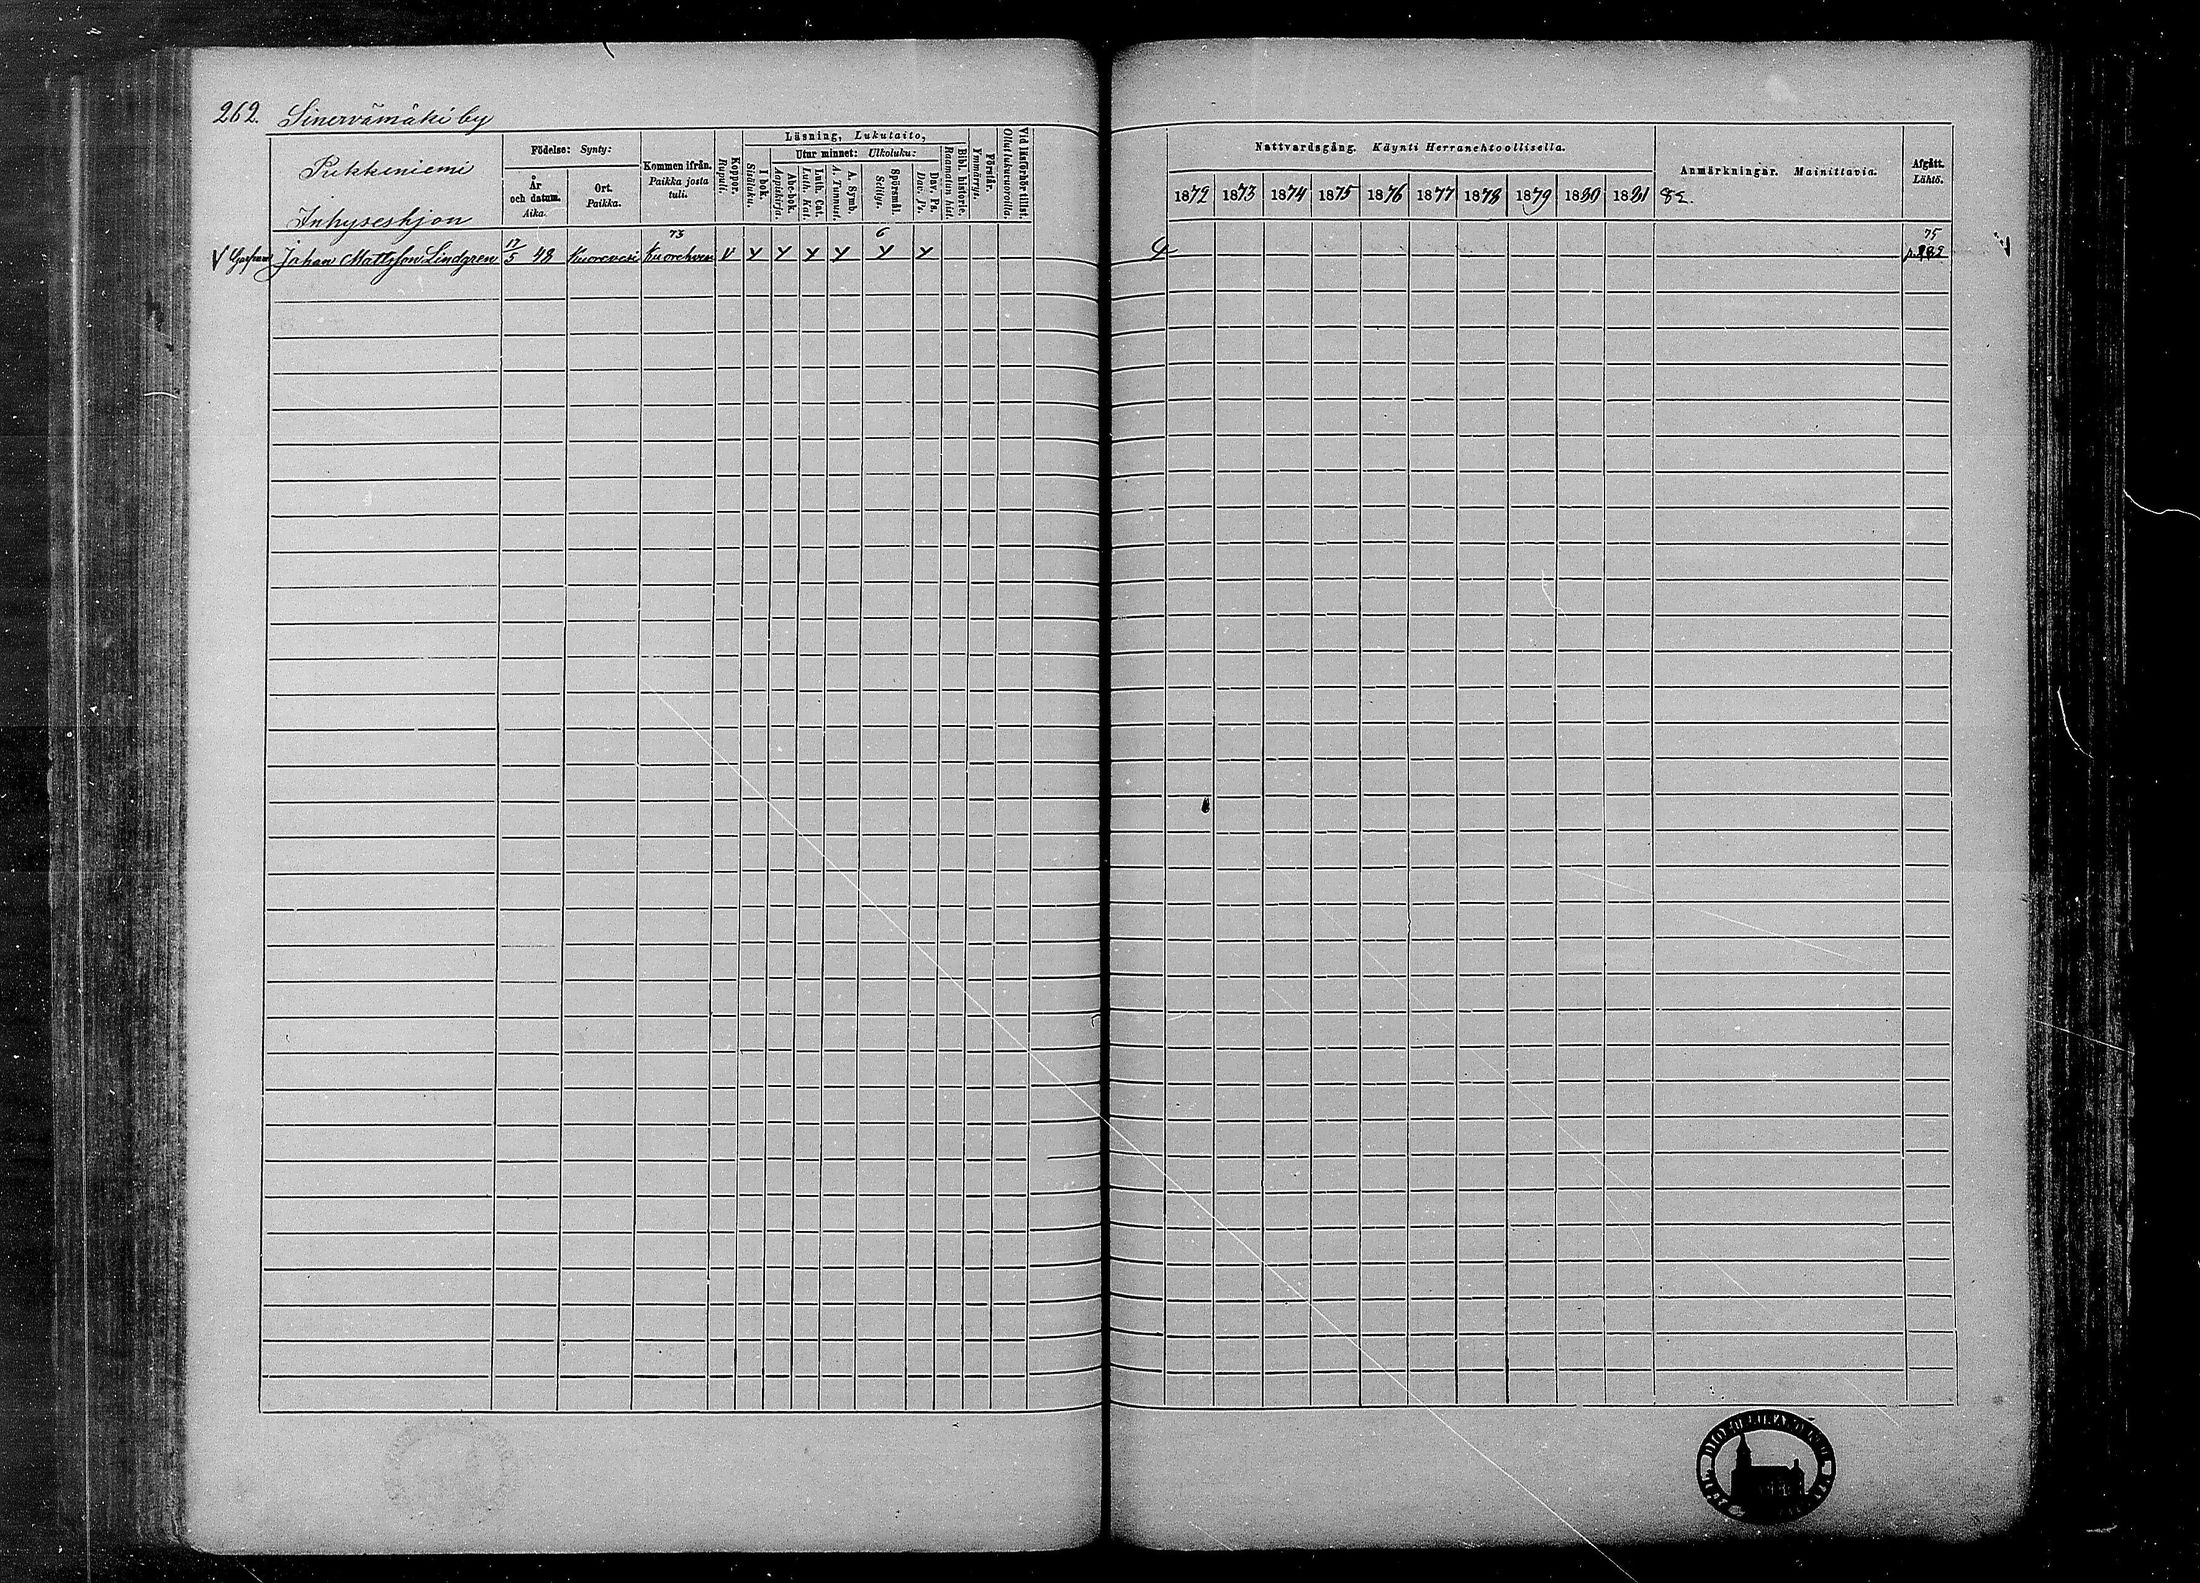 262. Sinervämäki by
Pukkeniemi
Inhyseshjon
Födelse: Synty:
År och datum. Aika.
Ort. Paikka.
Kommen ifrån. Paikka josta tuli.
Koppor. Rupuli.
Läsning, Lukutaito,
I bok. Sisäluku.
Utur minnet: Ulkoluku:
Abc-bok. Aapiskirja.
Luth. Cat. Luth. Kat.
A. Symb. A. Tunnust.
Spörsmål. Selitys.
Dav. Ps. Dav. Ps.
Bibl. historie. Raamatun hist.
Förstår. Ymmärrys.
Vid läsförhör tillst. Ollut lukuvuovoilla.
Nattvardsgång. Käynti Herranehtoollisella.
1872 1873 1874 1875 1876 1877 1878 1879 1880 1881 82.
Anmärkningar. Mainittavia.
Afgått. Lähtö.
73 6 75
V Johan Mattsson Lindgren 17/5 48 Kuorevesi Kuorehvesi V Y Y Y Y Y Y